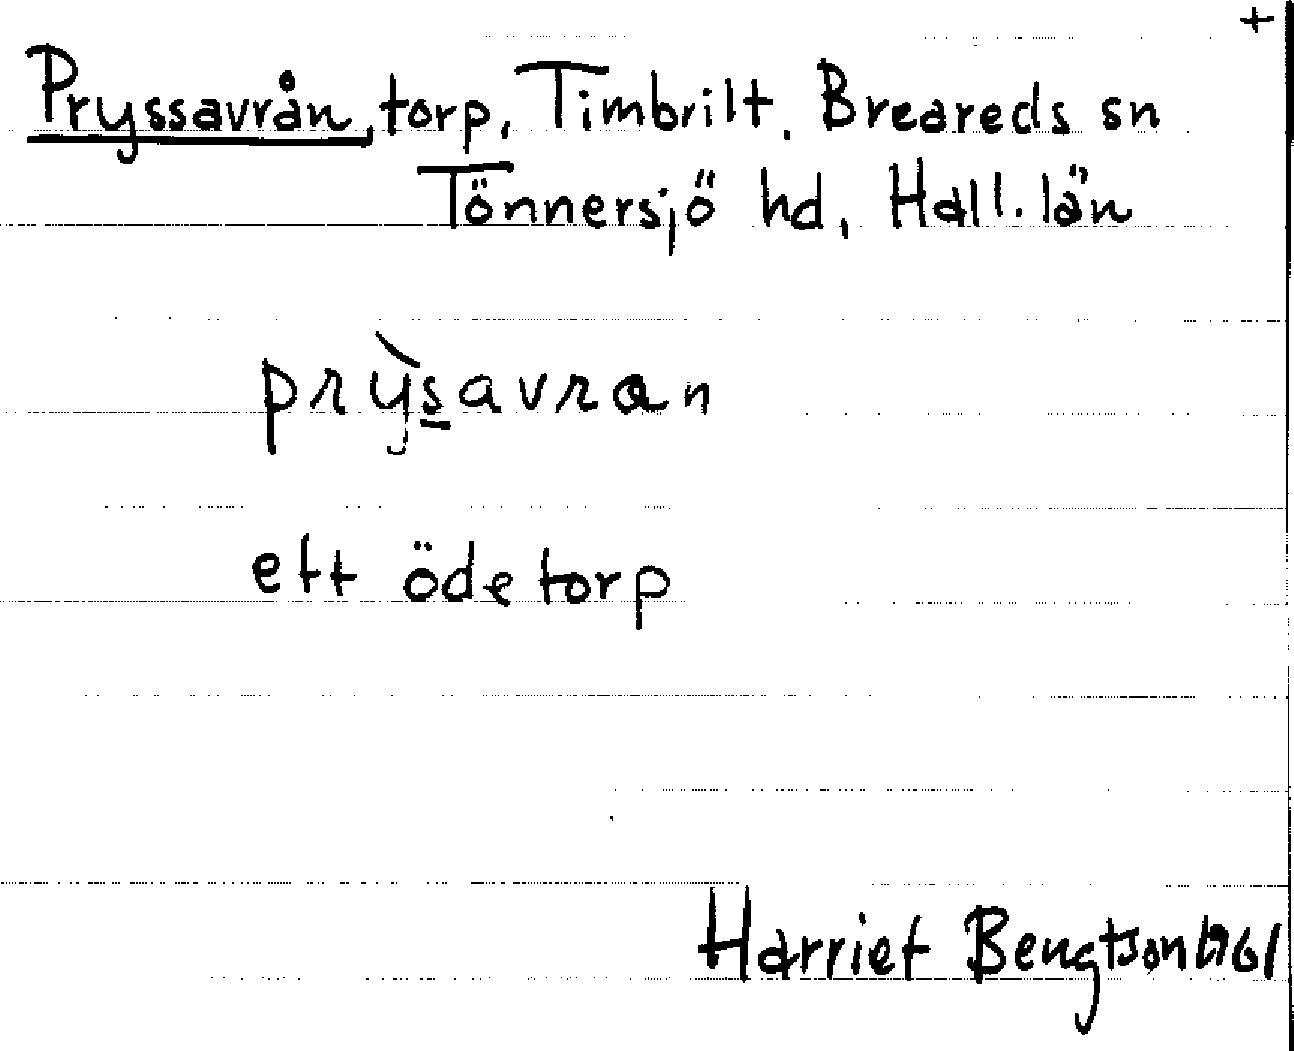 +
Pryssavrån, torp, Timbrilt. Breareds sn
Tönnersjö hd, Hall. län
prỳsavran
ett ödetorp
Harriet Bengtson 1961